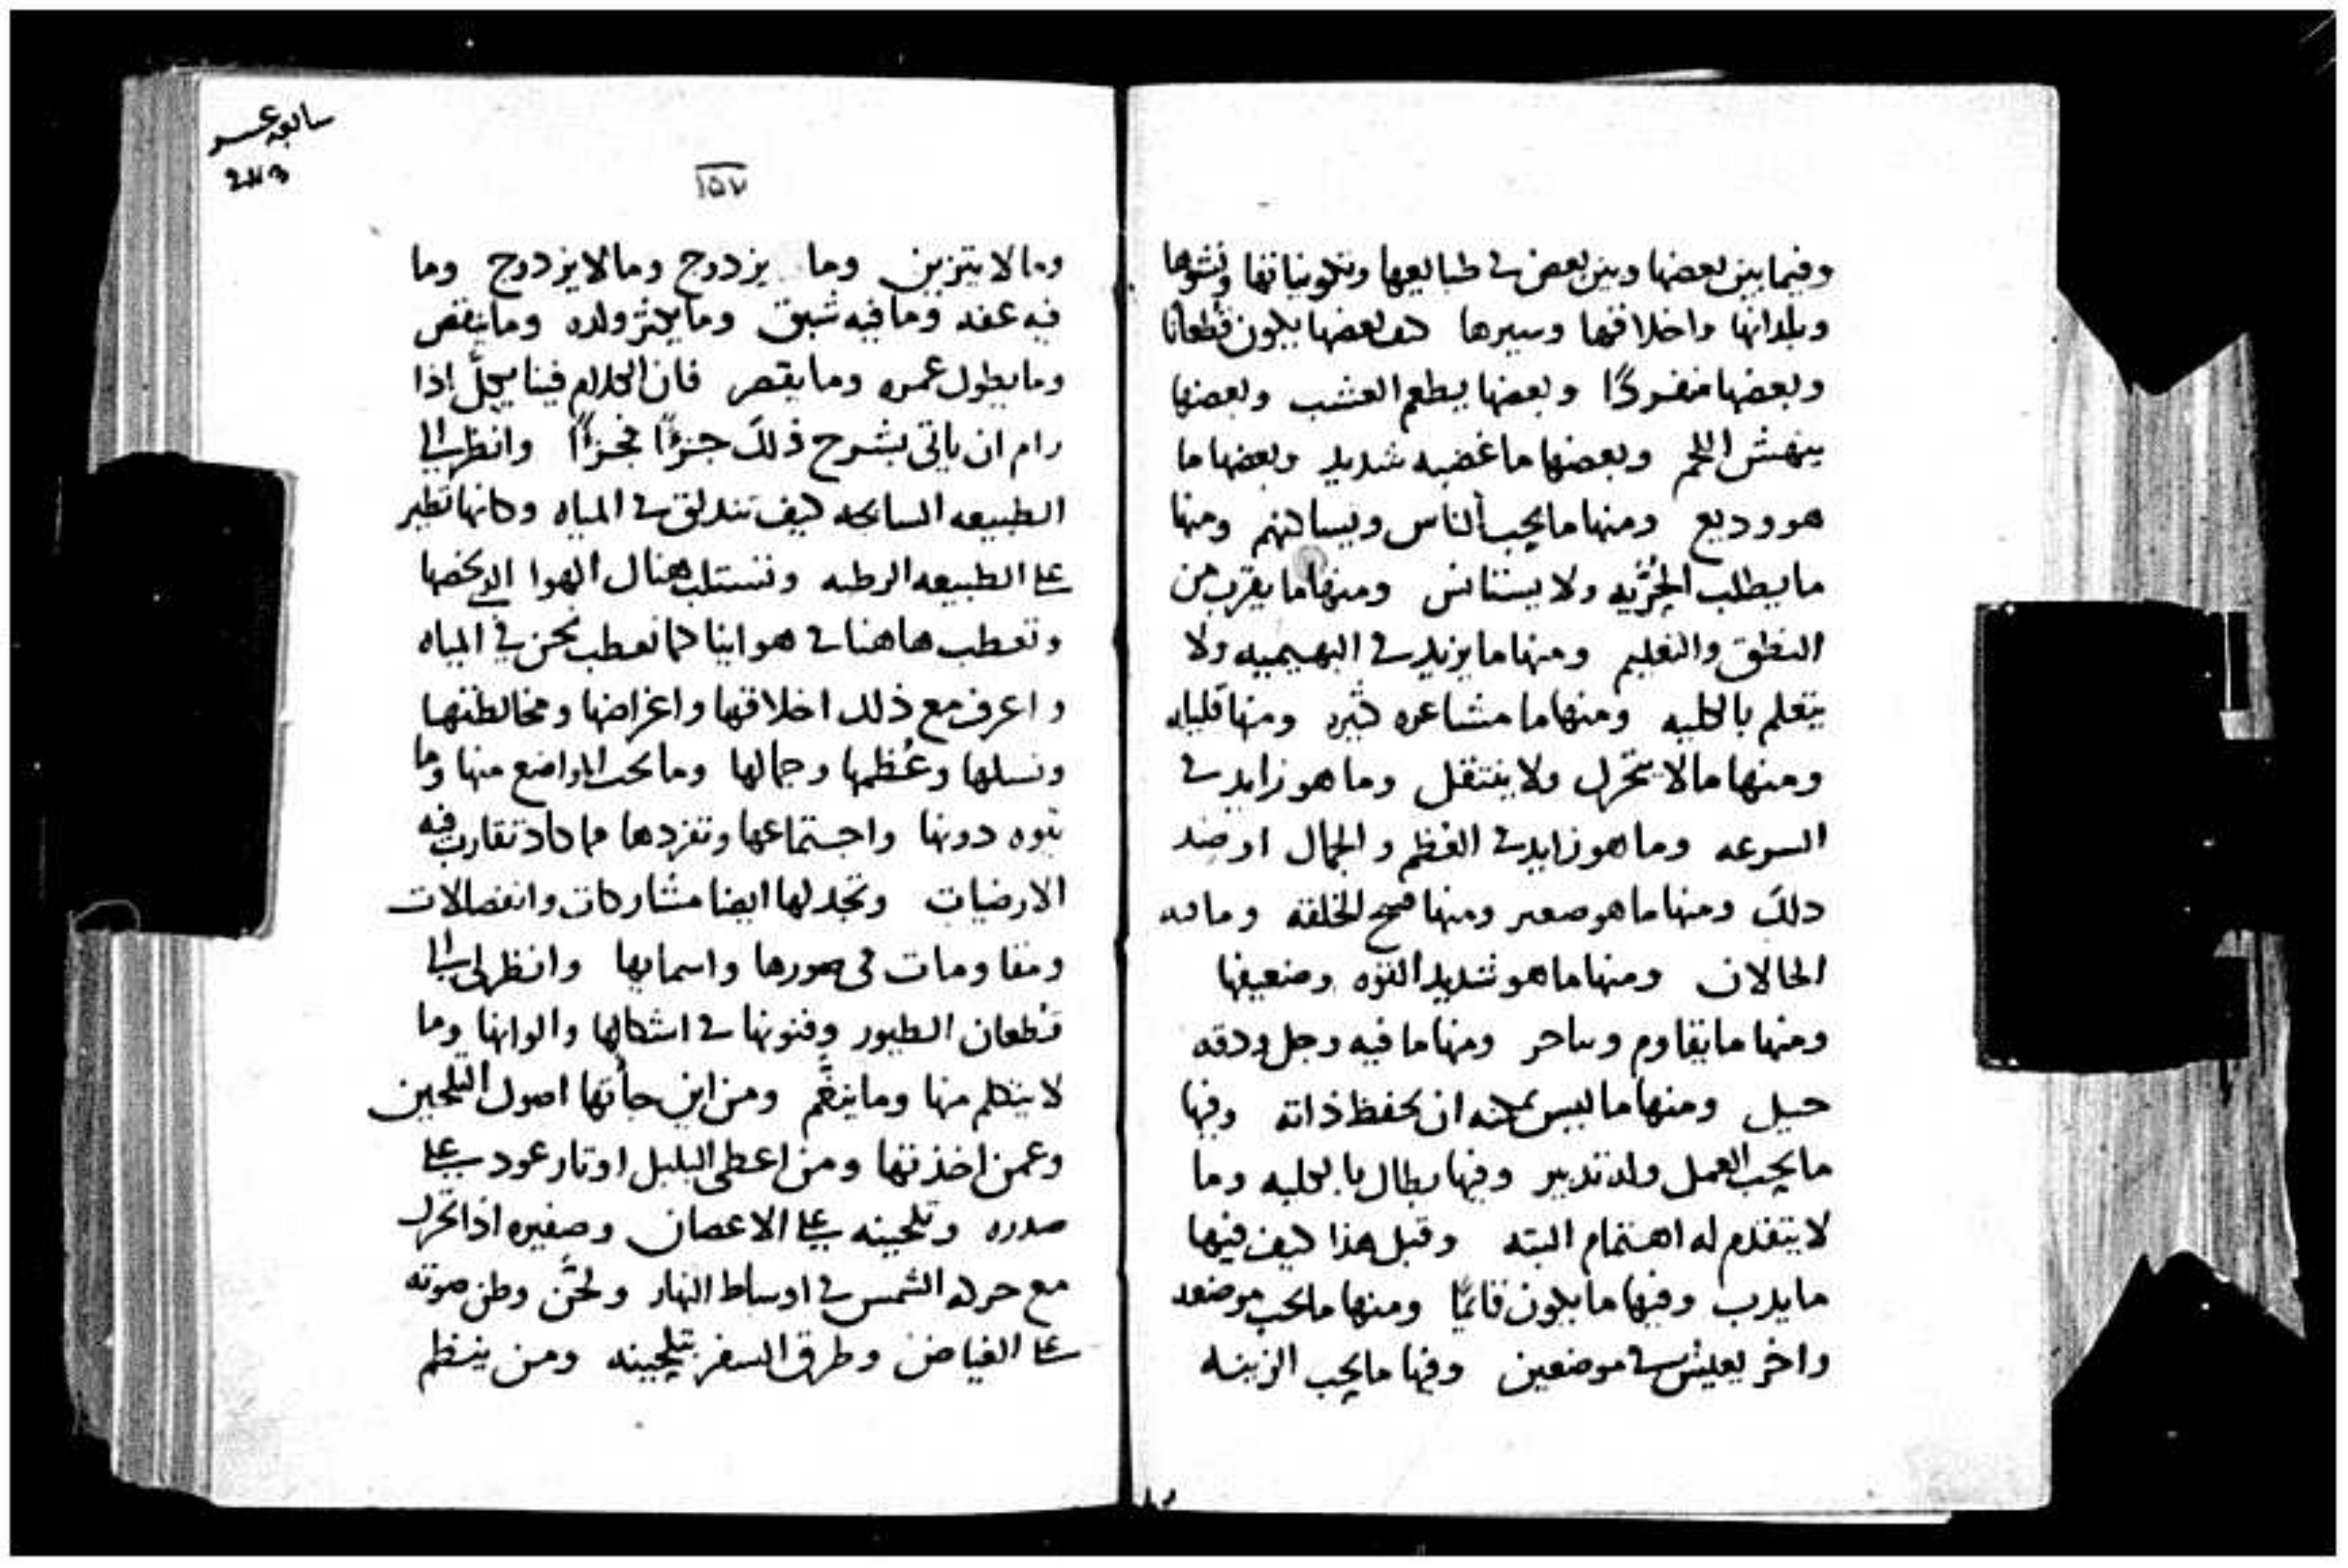 وفيما بين بعضها وبين بعض في طبايعها وتكويناتها ونشوها
وبلدانها واخلاقها وسيرها كيف بعضها يكون قطعانا
وبعضها منفردًا وبعضها يطعم العشب وبعضها
ينهش اللحم وبعضها ما غضبه شديد وبعضها ما
هو وديع ومنها ما يحب الناس ويساكنهم ومنها
ما يطلب الحُرّيه ولا يستانس ومنها ما يقرب من
النطق والتعليم ومنها ما يزيد في البهيميه ولا
يتعلم بالكليه ومنها ما مشاعره كثيره ومنها قليله
ومنها ما لا يتحرك ولا ينتقل وما هو زايد في
السرعه وما هو زايد في العظم والجمال او ضد
ذلك ومنها ما هو صغير ومنها قبيح الخلقه وما فيه
الحالان ومنها ما هو شديد القوه وضعيفها
ومنها ما يقاوم ومنها ما فيه وجل ودقه
حيل ومنها ما ليس يمكنه ان يحفظ ذاته وفيها
ما يحب العمل وله تدبير وفيها بطال بالكليه وما
لا يتقدم له اهتمام البته وقبل هذا كيف فيها
ما يدب وفيها ما يكون قائمًا ومنها ما يحب موضعه
واخر يعيش في موضعين وفيها ما يحب الزينه
سابعه عشر
١٥٧
وما لا يتزين وما يزدوج وما لا يزدوج وما
فيه عفه وما فيه شبق وما يكثر ولده وما ينقص
وما يطول عمره وما يقصر فان الكلام فينا يكلّ اذا
رام ان ياتي بشرح ذلك جزءًا فجزءًا وانظر الى
الطبيعه السابحه كيف تندلق في المياه وكانها تطير
على الطبيعه الرطبه وتستلب هناك الهوا الذي يخصها
وتعطب هاهنا في هوائنا كما نعطب نحن في المياه
واعرف مع ذلك اخلاقها واغراضها ومخالطتها
ونسلها وعُظمها وجمالها وما يحب المواضع منها وما
يتوه دونها واجتماعها وتفردها مما كاد تقارب فيه
الارضيات وتجد لها ايضا مشاركات وانفصالات
ومقاومات في صورها واسمايها وانظر لي الى
قُطعان الطيور وفنونها في اشكالها والوانها وما
لا يتكلم منها وما يتنغّم ومن اين جأتها اصول التلحين
وعمن اخذتها ومن اعطى البلبل اوتار عود على
صدره وتلحينه على الاغصان وصفيره اذا تحرك
مع حركه الشمس في اوساط النهار ولحّن وطن صوته
على الغياض وطرق السفر بتلحينه ومن ينظم